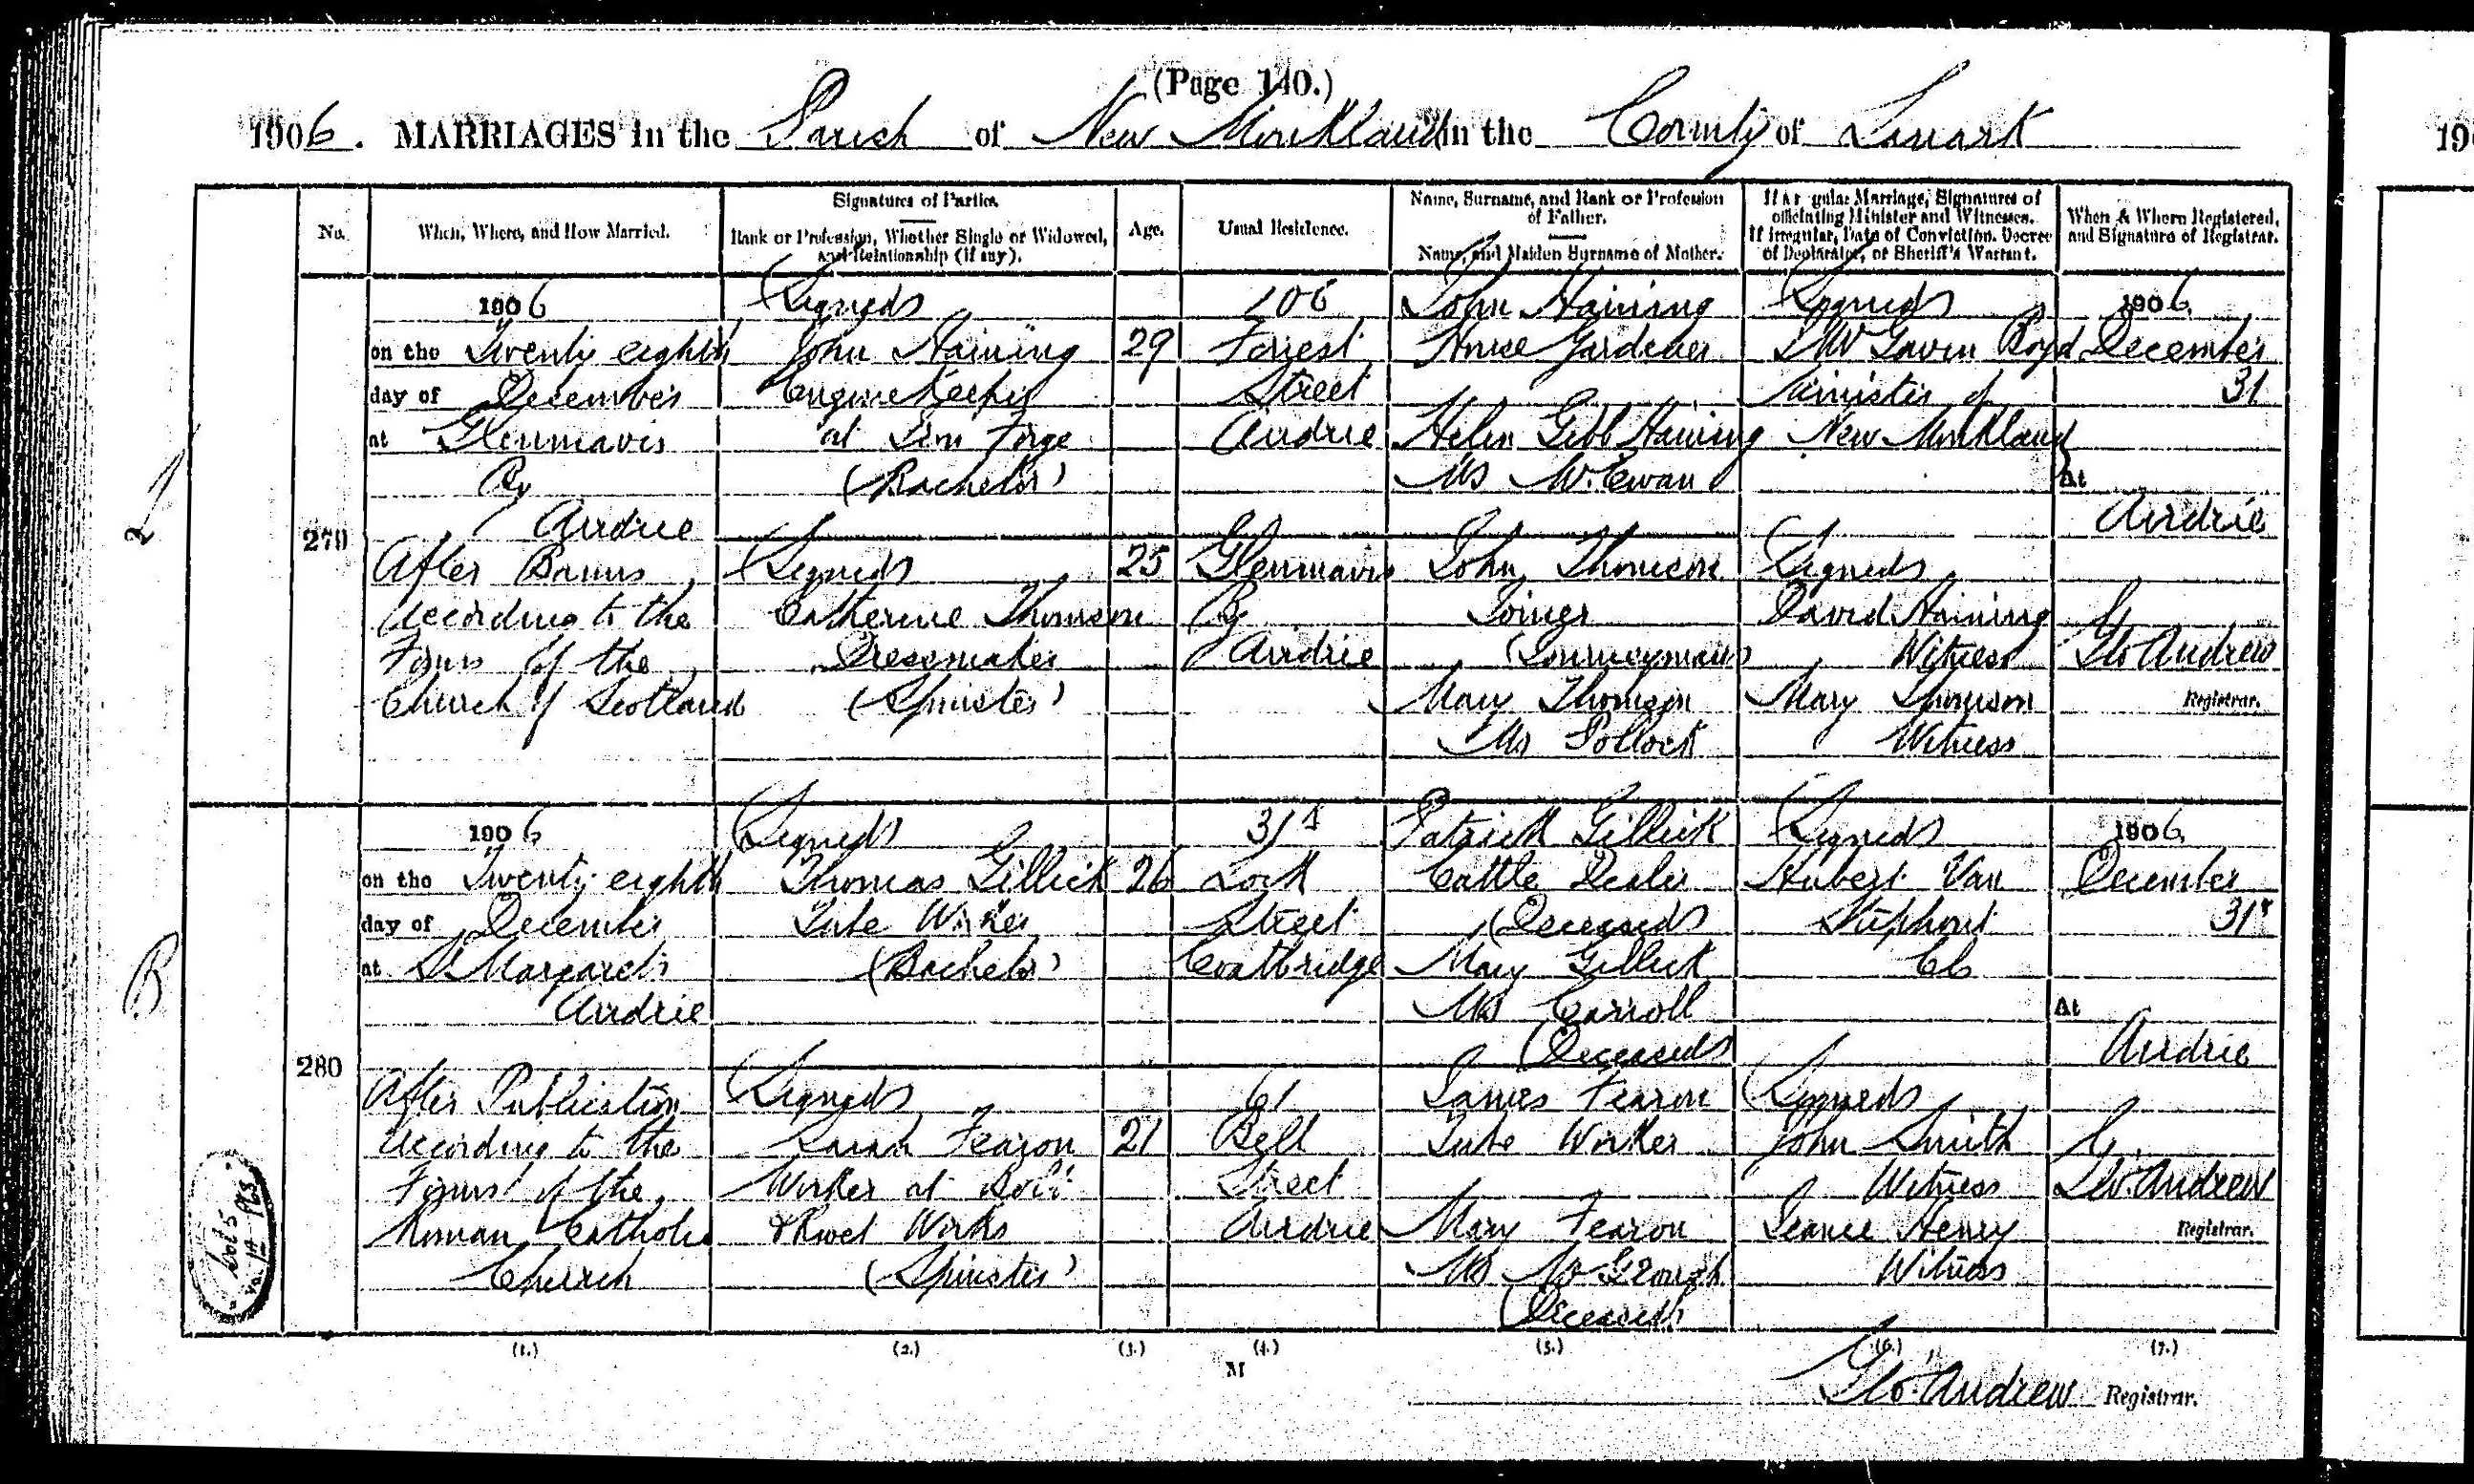 (Page 140.)
1906. MARRIAGES in the Parish of New Monkland in the County of Lanark
No.
When, Where, and How Married.
Signatures of Parties.
Rank or Profession, Whether Single or Widowed, and Relationship (if any).
Age.
Usual Residence.
Name, Surname, and Rank or Profession of Father.
Name, and Maiden Surname of Mother.
If a regular Marriage, Signatures of officiating Minister and Witnesses.
If irregular, Date of Conviction, Decree of Declarator, or Sheriff's Warrant.
When & Where Registered, and Signature of Registrar.
279
1906
on the Twenty eighth
day of December
at Glenmavis
By
Airdrie
After Banns
According to the
Forms of the
Church of Scotland
(Signed)
John Haining
Engine Keeper
at Iron Forge
(Bachelor)
(Signed)
Catherine Thomson
Dressmaker
(Spinster)
29
25
106
Forrest
Street
Airdrie
Glenmavis
By
Airdrie
John Haining
Gardener
Helen Gibb Haining
MS McEwan
John Thomson
Joiner
(Journeyman)
Mary Thomson
MS Pollock
(Signed)
Gavin Boyd
Minister of
New Monkland
(Signed)
David Haining
Witness
Mary Thomson
Witness
1906
December
31
At
Airdrie
Geo Andrew
Registrar.
280
1906
on the Twenty eighth
day of December
at St Margaret's
Airdrie
After Publication
According to the
Forms of the
Roman Catholic
Church
(Signed)
Thomas Gillick
Tube Worker
(Bachelor)
(Signed)
Sarah Fearon
Worker at Bolt
& Rivet Works
(Spinster)
26
21
31
Lock
Street
Coatbridge
61
Bell
Street
Airdrie
Patrick Gillick
Cattle Dealer
(Deceased)
Mary Gillick
MS Carroll
(Deceased)
James Fearon
Tube Worker
Mary Fearon
MS
(Deceased)
(Signed)
Hubert Van
CC
(Signed)
John Smith
Witness
Henry
Witness
1906
December
31
At
Airdrie
Geo. Andrew
Registrar.
(1.) (2.) (3.) (4.) (5.) (6.) (7.)
M
Geo. Andrew Registrar.